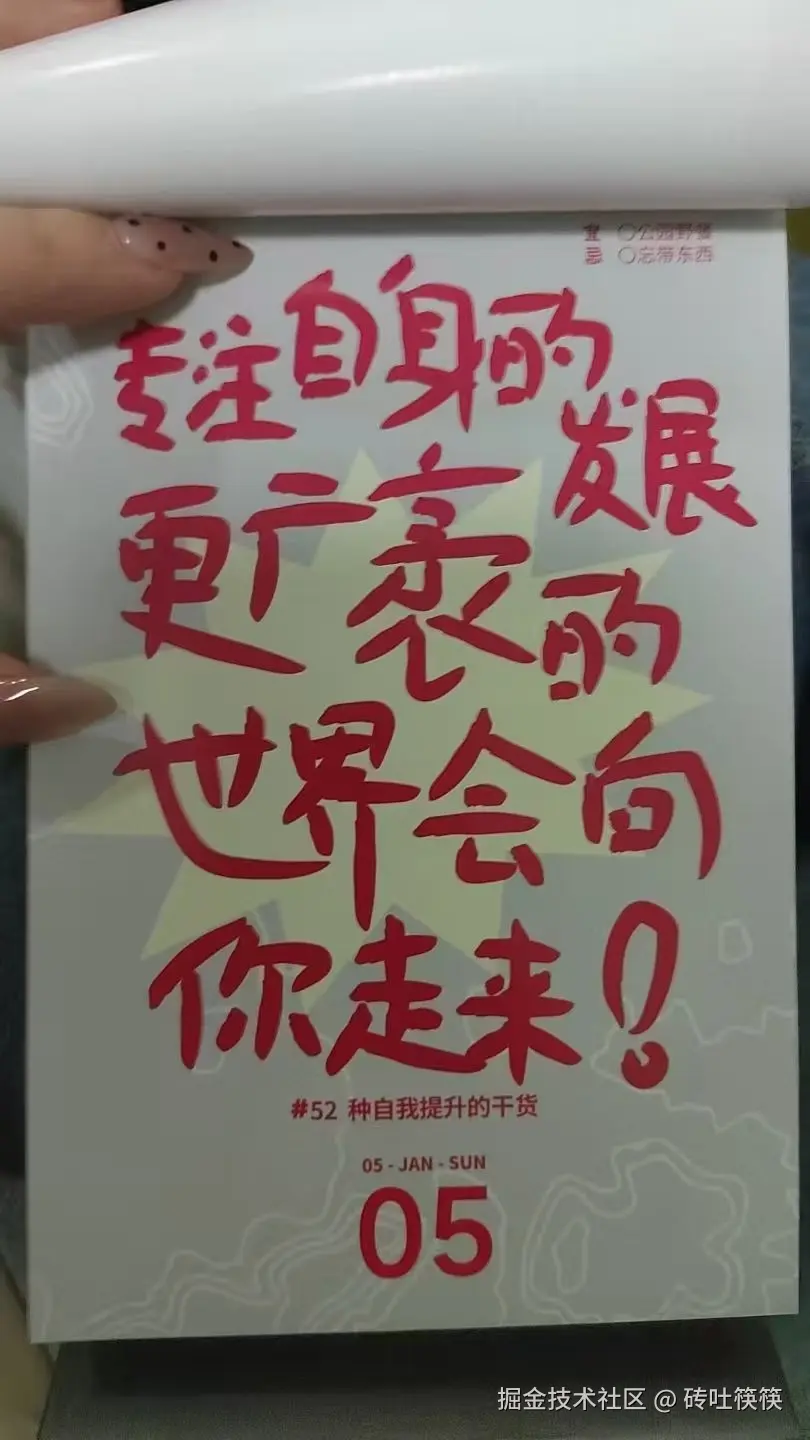 宜 〇公园野餐
忌 〇忘带东西
专注自身的
发展
更广袤的
世界会向
你走来!
#52 种自我提升的干货
05 - JAN - SUN
05
掘金技术社区 @ 砖吐筷筷